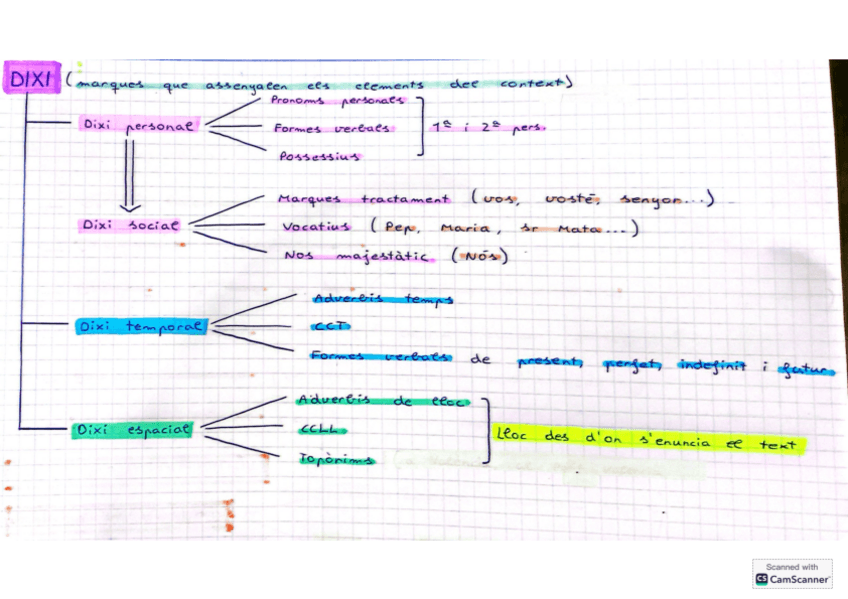 DIXI (marques que assenyalen els elements del context)
Pronoms personals
Dixi personal Formes verbals 1ª i 2ª pers.
Possessius
Marques tractament (vos, vostè, senyor...)
Dixi social Vocatius (Pep, Maria, sr Mata...)
Nos majestàtic (Nós)
Adverbis temps
Dixi temporal CCT
Formes verbals de present, perfet, indefinit i futur
Adverbis de lloc
Dixi espacial CCLL Lloc des d'on s'enuncia el text
Topònims
Scanned with
CS CamScanner